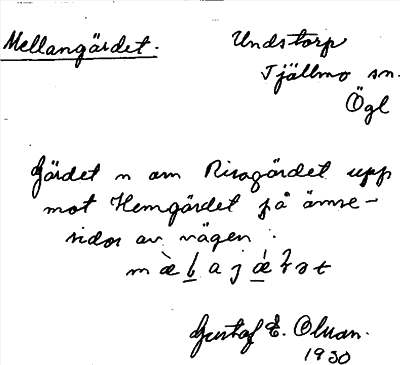 Mellangärdet.
Undstorp
Tjällmo sn.
Ögl
Gärdet n om Risagärdet upp
mot Hemgärdet på ömse-
sidor av vägen.
Gustaf E. Olson.
1930